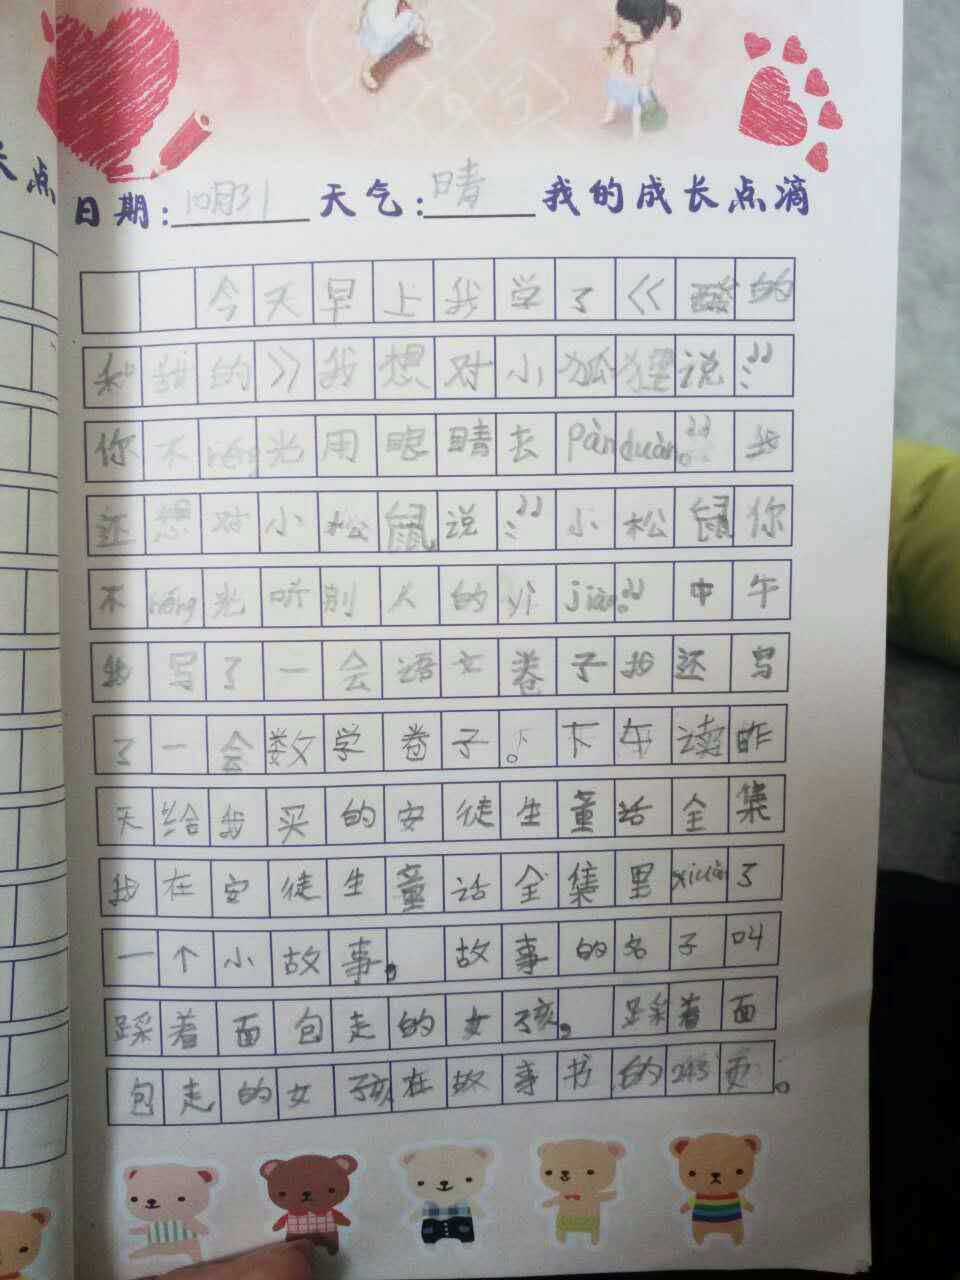 长点
日期: 10月31 天气: 晴 我的成长点滴
今天早上我学了《酸的
和甜的》我想对小狐狸说:“
你不néng光用眼睛去pànduàn。”我
还想对小松鼠说:“小松鼠你
不néng光听别人的yìjiàn。”中午
我写了一会语文卷子我还写
了一会数学卷子。下下午读昨
天给我买的安徒生童话全集
我在安徒生童话全集里xuǎn了
一个小故事。故事的名子叫
踩着面包走的女孩。踩着面
包走的女孩在故事书的243页。